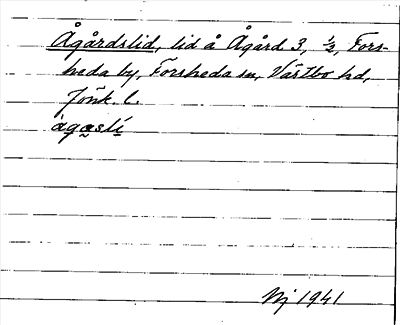 Ågårdslid, lid å Ågård 3, 1/2, Fors-
heda by, Forsheda sn, Västbo hd,
Jönk. l.
àgasli
Nj 1941